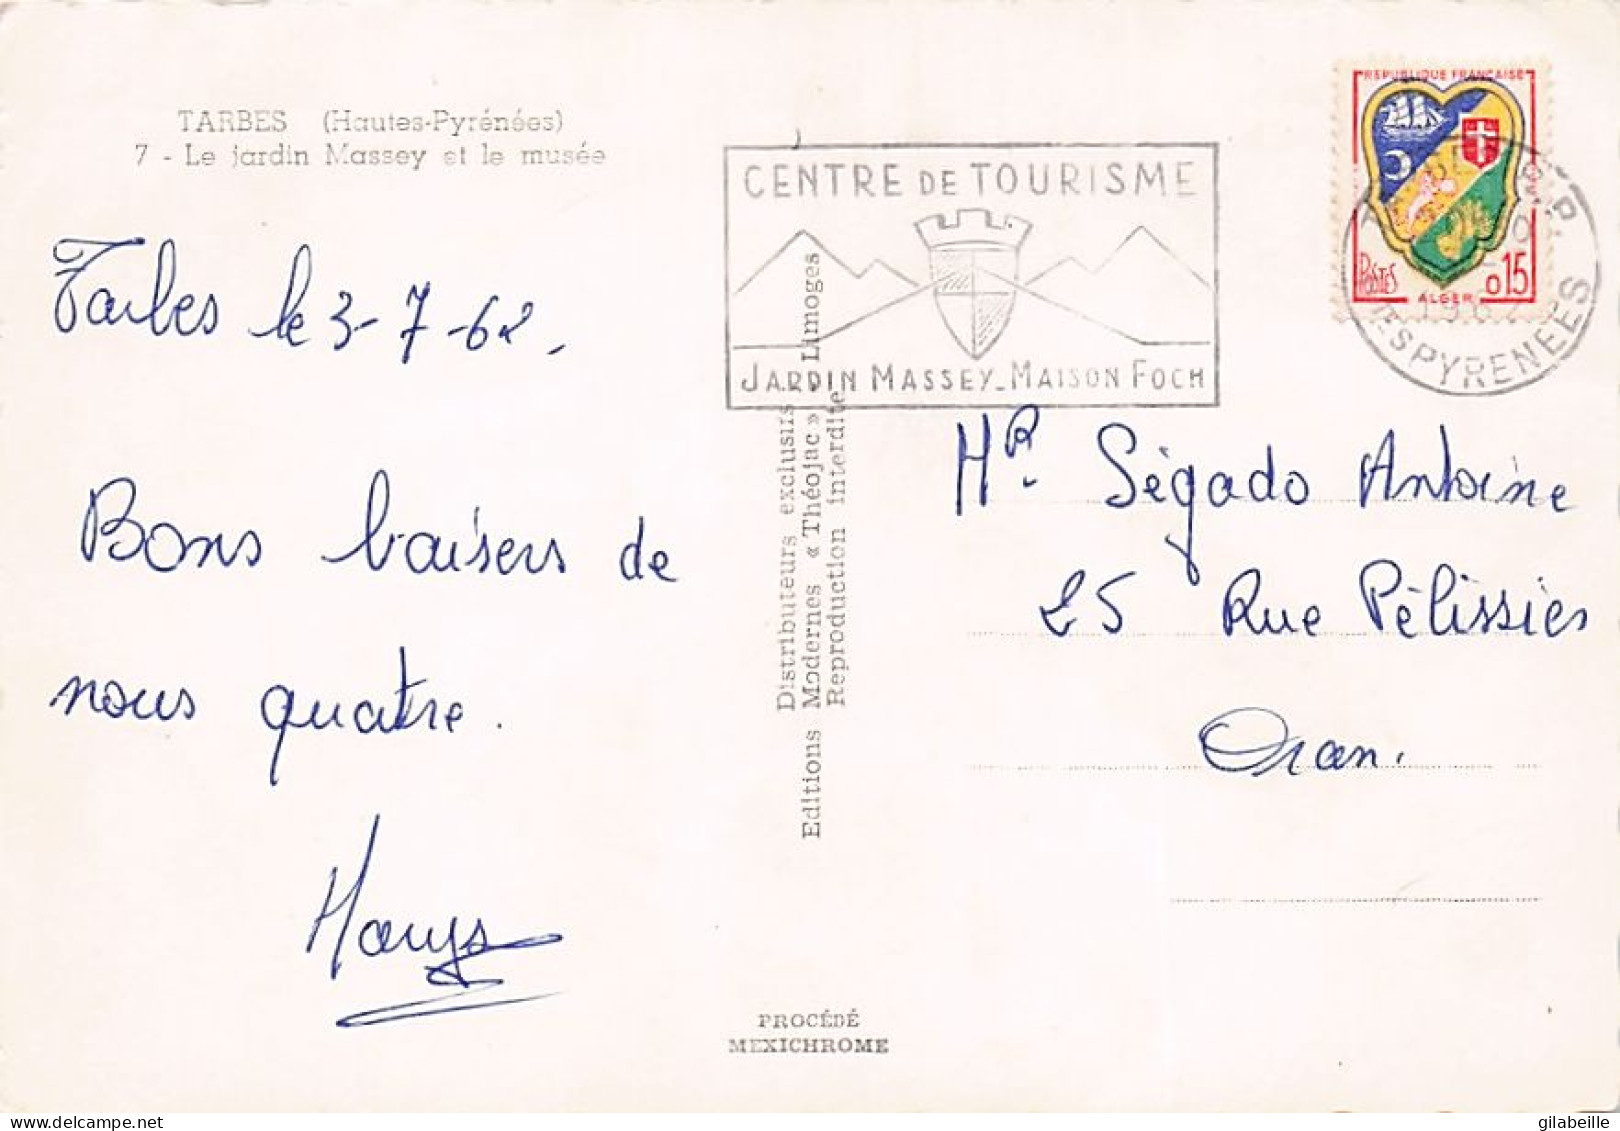 TARBES (Hautes-Pyrénées)
7 - Le jardin Massey et le musée
Tarbes le 3-7-62.
Bons baisers de
nous quatre.
CENTRE DE TOURISME
JARDIN MASSEY_MAISON FOCH
REPUBLIQUE FRANÇAISE
POSTES
ALGER
0,15
1962
Tes PYRENEES
Distributeurs exclusifs
Editions Modernes « Théojac » Limoges
Reproduction interdite
Mr. Ségado Antoine
25 Rue Pélissier
Oran.
PROCÉDÉ
MEXICHROME
gilabeille